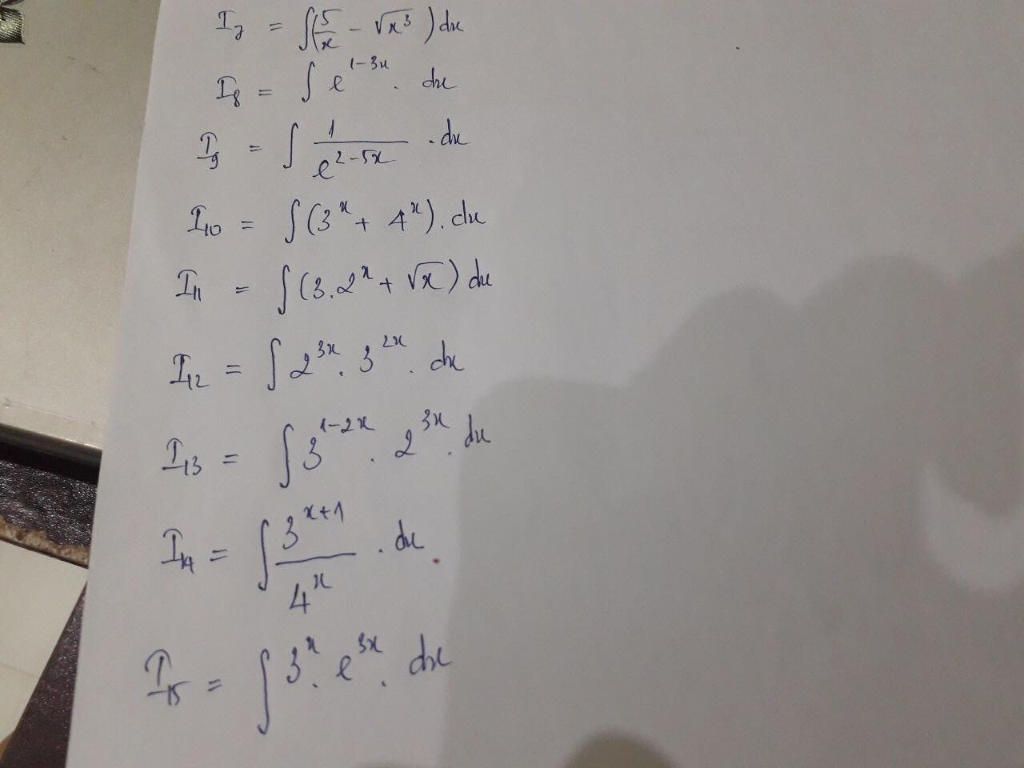 I₇ = ∫(5/x − √x³)dx
I₈ = ∫ e^(1−3x) . dx
I₉ = ∫ 1/e^(2−5x) . dx
I₁₀ = ∫(3^x + 4^x). dx
I₁₁ = ∫(3.2^x + √x) dx
I₁₂ = ∫ 2^(3x) . 3^(2x) . dx
I₁₃ = ∫ 3^(1−2x) . 2^(3x) . dx
I₁₄ = ∫ 3^(x+1)/4^x . dx .
I₁₅ = ∫ 3^x . e^(3x) . dx